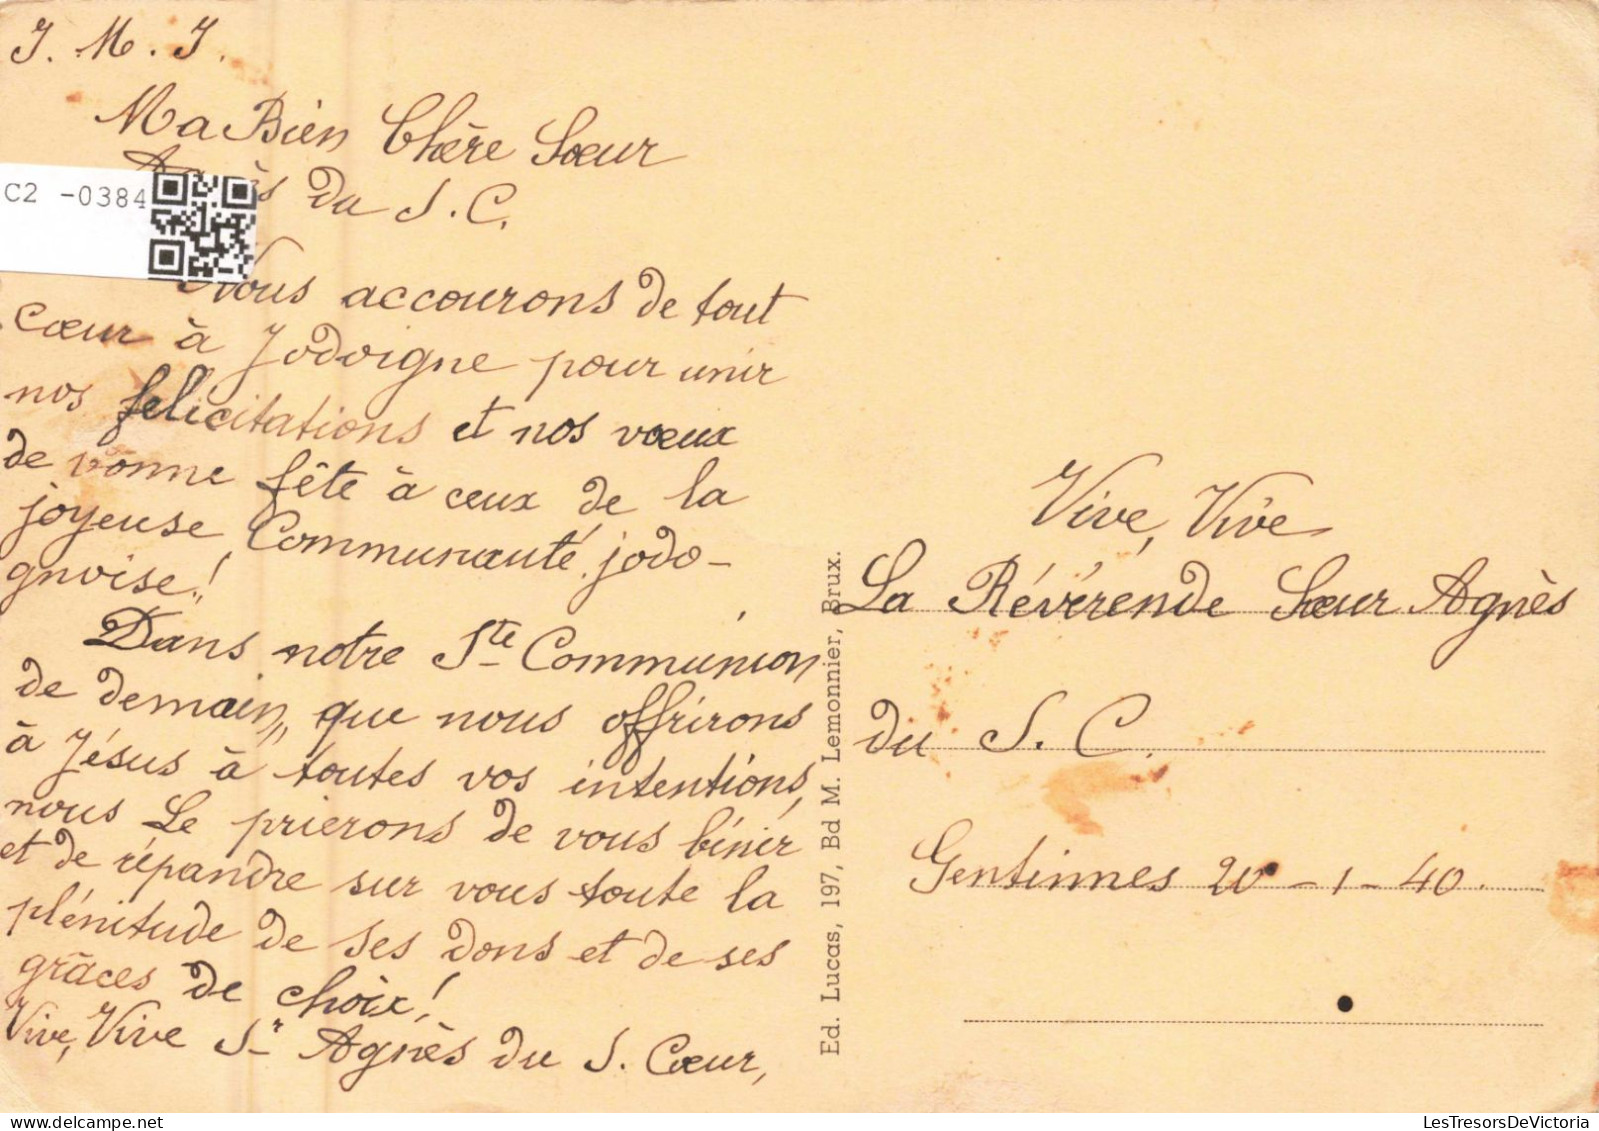 J. M. J.
Ma Bien Chère Sœur
Agnès du S. C.
C2 -0384
Nous accourons de tout
cœur à Jodoigne pour unir
nos félicitations et nos vœux
de bonne fête à ceux de la
joyeuse Communauté jodo-
gnoise!
Dans notre Ste Communion
de demain, que nous offrirons
à Jésus à toutes vos intentions,
nous Le prierons de vous bénir
et de répandre sur vous toute la
plénitude de ses dons et de ses
grâces de choix!
Vive, Vive Sr Agnès du S. Cœur,
Ed. Lucas, 197, Bd M. Lemonnier, Brux.
Vive, Vive
La Révérende Sœur Agnès
du S. C.
Gentinnes 20 - 1 - 40.
LesTresorsDeVictoria